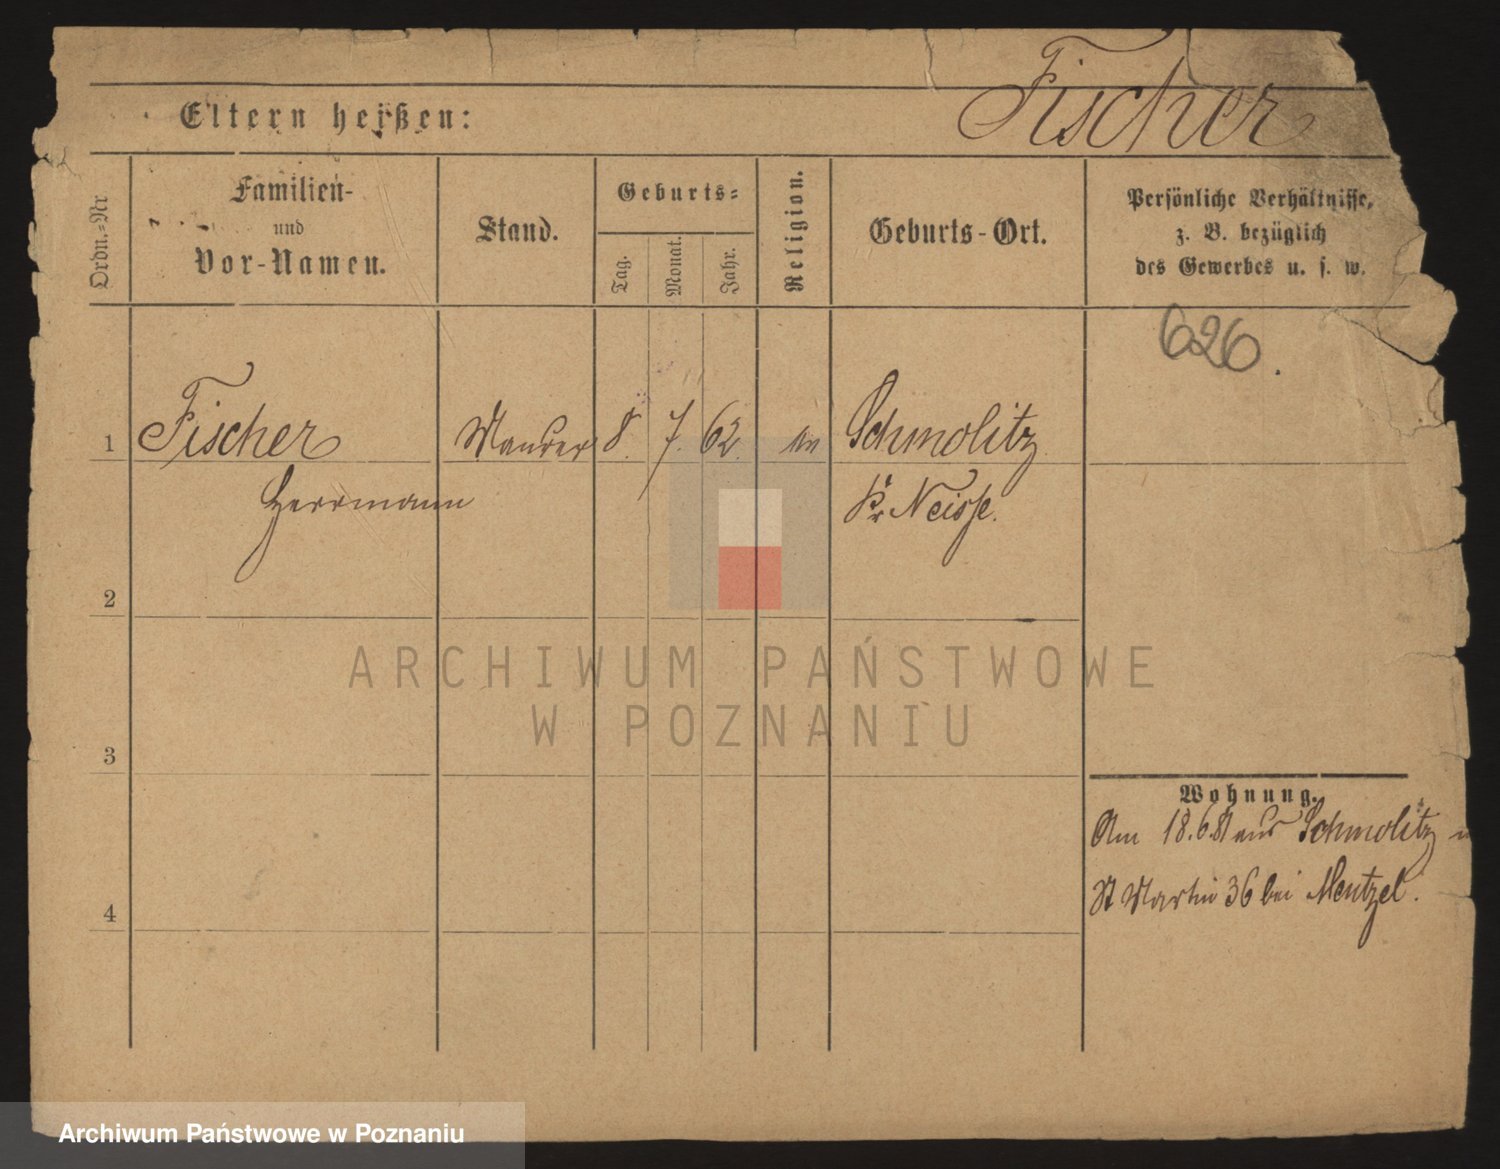 Fischer
Eltern heißen:
Ordn.-Nr
Familien-
und
Vor-Namen.
Stand.
Geburts-
Tag.
Monat.
Jahr.
Religion.
Geburts-Ort.
Persönliche Verhältnisse,
z. B. bezüglich
des Gewerbes u. s. w.
626.
1 Fischer Maurer 8. 7. 62. Schmolitz
Herrmann Kr Neisse.
2
3
4
Wohnung.
Am 18.6.81 aus Schmolitz n
St Martin 36 bei Mentzel.
ARCHIWUM PAŃSTWOWE
W POZNANIU
Archiwum Państwowe w Poznaniu